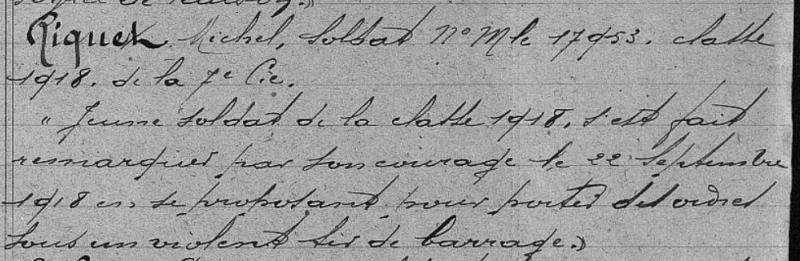 Riquet Michel, soldat N° Mle 17953. classe
1918. de la 7e Cie.
" Jeune soldat de la classe 1918, s'est fait
remarquer par son courage le 22 Septembre
1918 en se proposant pour porter des ordres
sous un violent tir de barrage.»